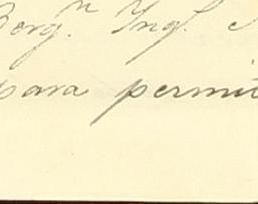 Berg.ⁿ Ing.
para permit